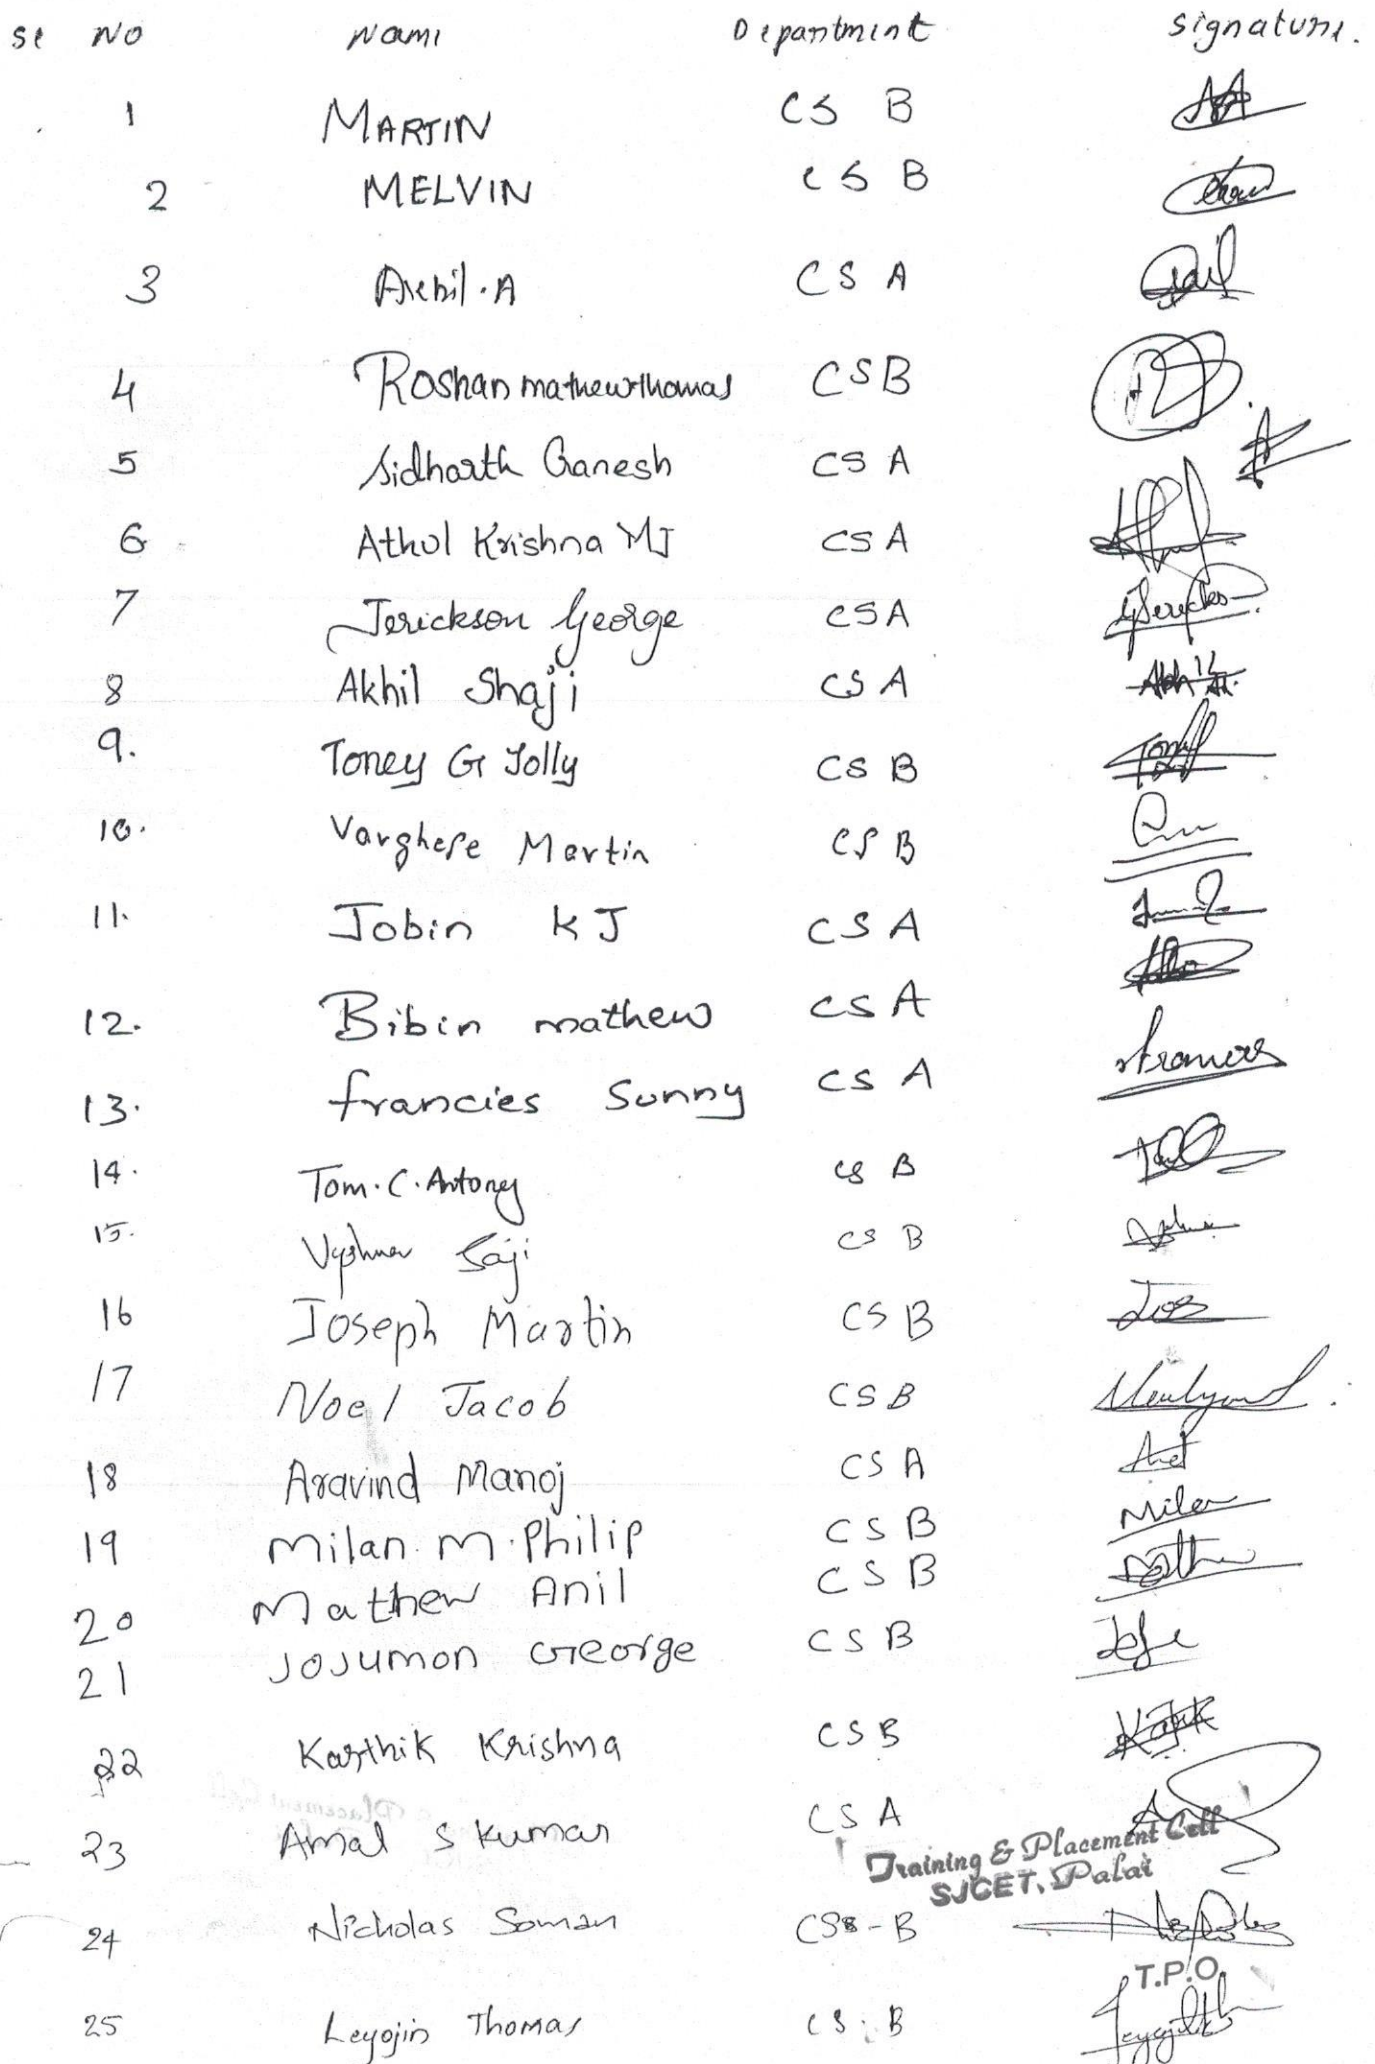 Sl No Name Department Signature.
1 MARTIN CS B
2 MELVIN CS B
3 Akhil.A CS A
4 Roshan mathewthomas CSB
5 Sidharth Ganesh CS A
6 Athul Krishna MJ CSA
7 Jerickson George CSA
8 Akhil Shaji CSA
9. Toney G Jolly CS B
10. Varghese Martin CS B
11. Jobin K J CS A
12. Bibin mathew CS A
13. francies Sunny CS A
14. Tom.C.Antony CS B
15. Vyshnav Saji CS B
16 Joseph Martin CS B
17 Noel Jacob CSB
18 Aravind Manoj CS A
19 Milan M.Philip CSB
20 Mathew Anil CSB
21 JOJUMON GEORGE CSB
22 Karthik Krishna CSB
23 Amal S Kumar CSA
Training & Placement Cell
SJCET, Palai
24 Nicholas Soman CS-B
T.P.O.
25 Leyojin Thomas CS B